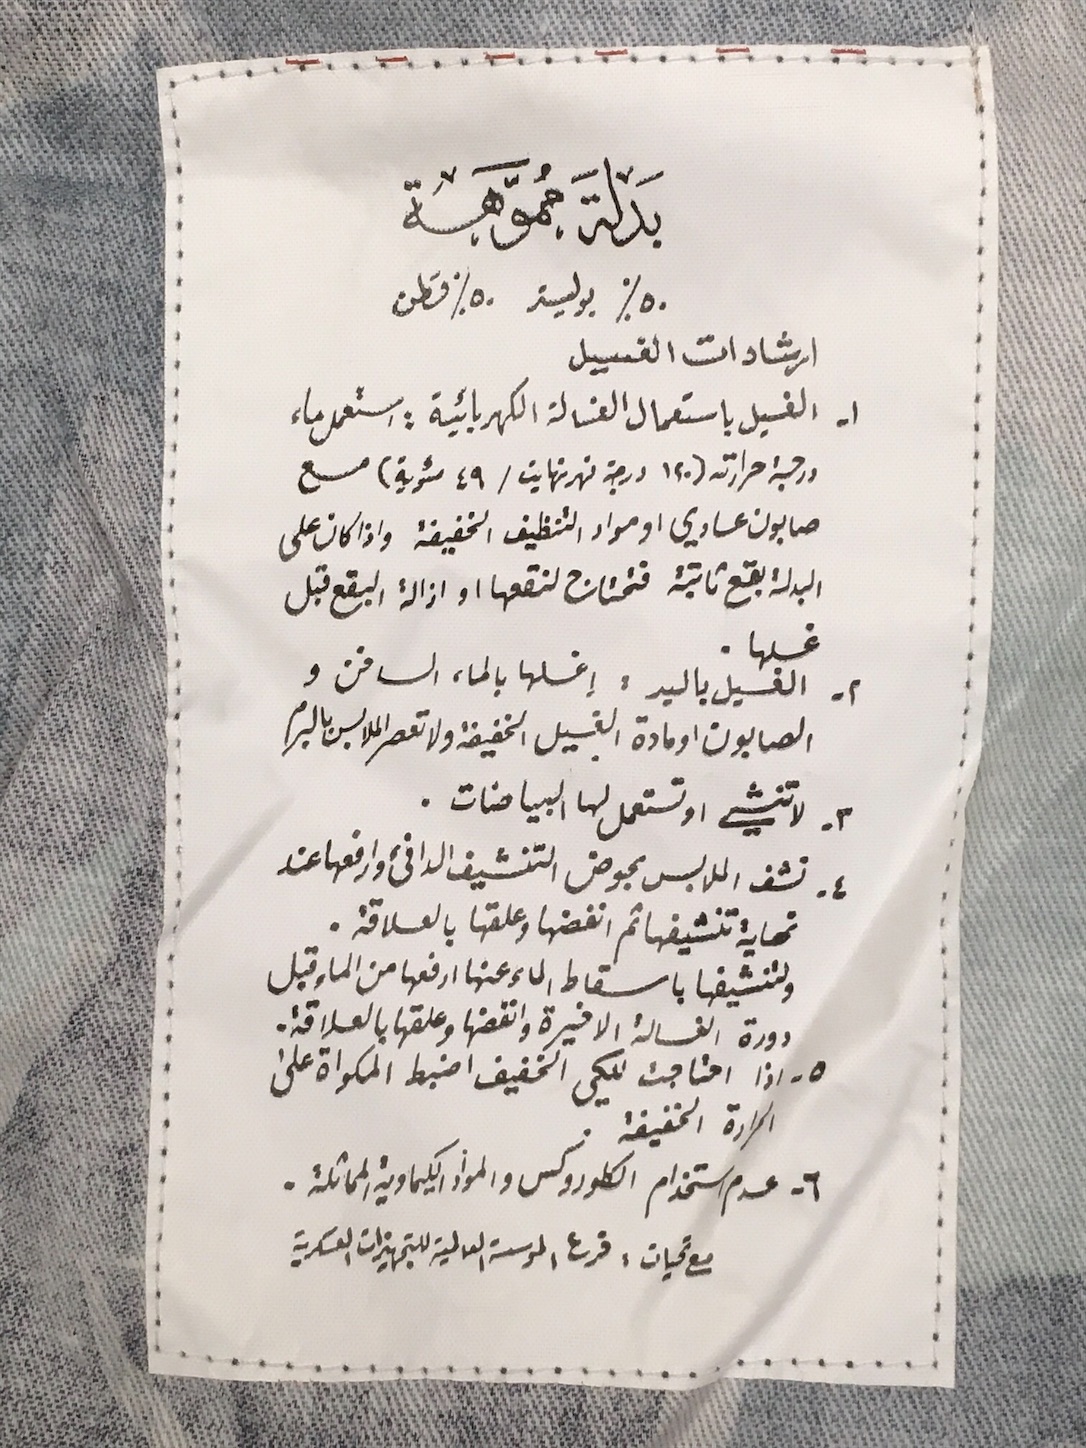 بَدْلَة مُمَوَّهَة
٥٠٪ بوليستر ٥٠٪ قطن
ارشادات الغسيل
١- الغسيل باستعمال الغسالة الكهربائية : استعمل ماء
درجة حرارته (١٢٠ درجة فهرنهايت / ٤٩ مئوية) مع
صابون عادي او مواد التنظيف الخفيفة واذا كان على
البدلة بقع ثابتة فتحتاج لنقعها او ازالة البقع قبل
غسلها .
٢- الغسيل باليد : إغسلها بالماء الساخن و
الصابون او مادة الغسيل الخفيفة ولا تعصر الملابس بالبرم
٣- لا تنشي او تستعمل لها البياضات .
٤- نشف الملابس بحوض التنشيف الدافئ وارفعها عند
نهاية تنشيفها ثم انفضها وعلقها بالعلاقة .
ولتنشيفها باسقاط الماء عنها ارفعها من الماء قبل
دورة الغسالة الاخيرة وانفضها وعلقها بالعلاقة .
٥- اذا احتاجت للكي الخفيف اضبط المكواة على
الحرارة الخفيفة .
٦- عدم استخدام الكلوروكس والمواد الكيماوية المماثلة .
مع تحيات : فرع المؤسسة العالمية للتجهيزات العسكرية